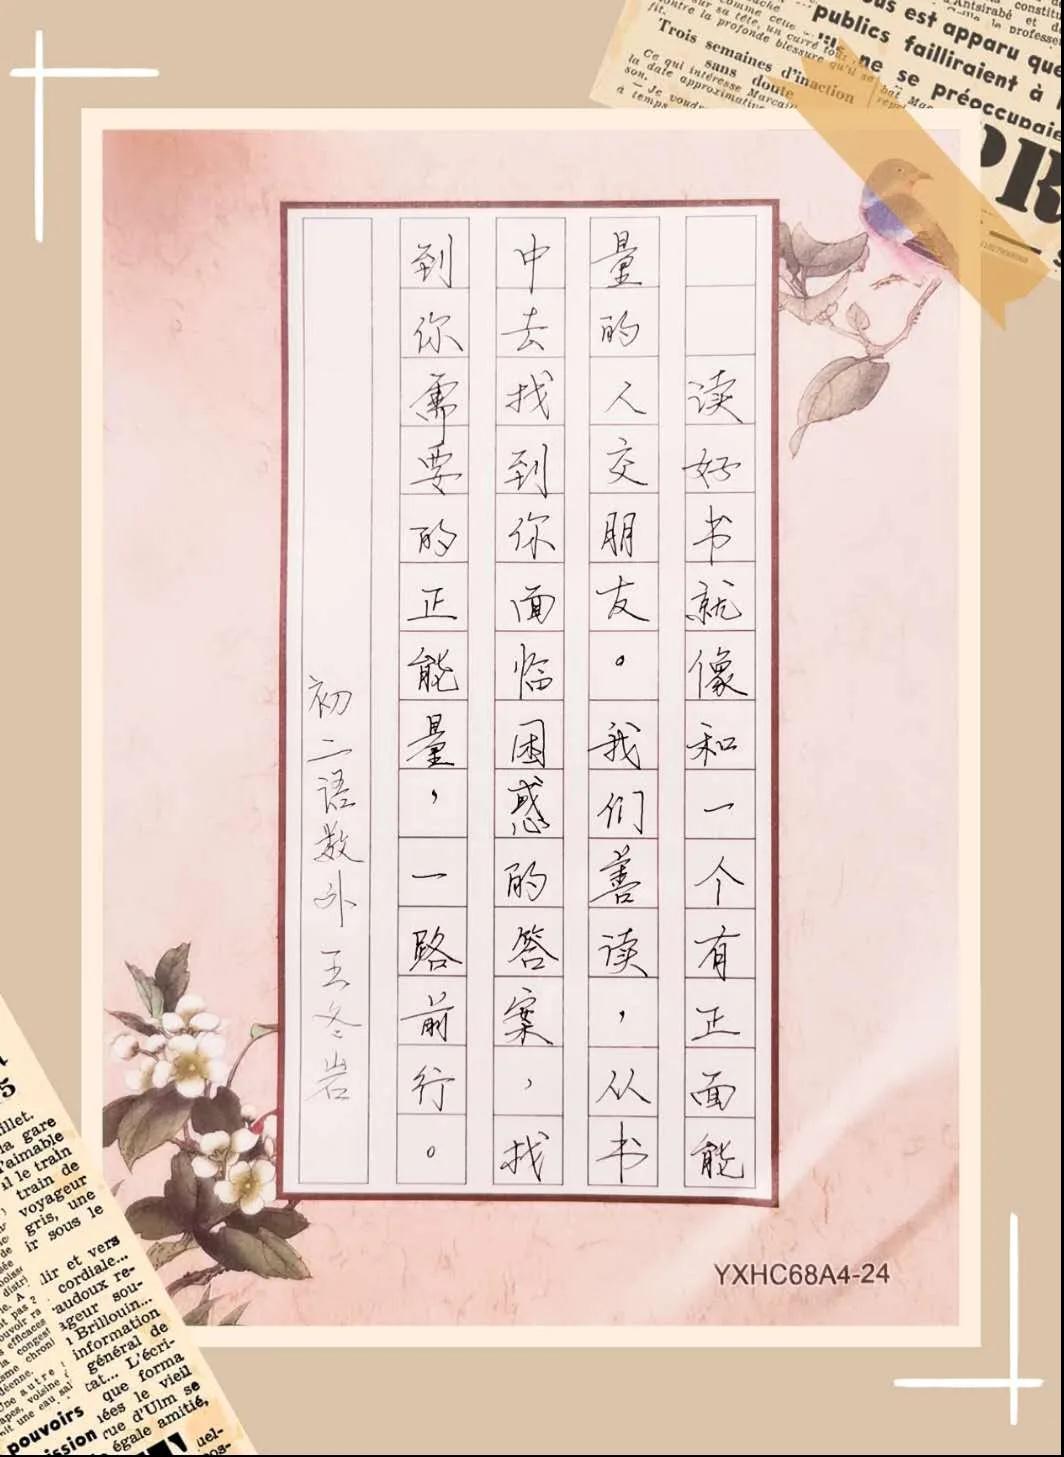 读好书就像和一个有正面能
量的人交朋友。我们善读，从书
中去找到你面临困惑的答案，找
到你需要的正能量，一路前行。
初二语数外 王冬岩
YXHC68A4-24
publics failliraient à
Trois semaines d'inaction
sans doute
ne se préoccupaie
Ce qui intéresse Marcai
la date approximativ
son.
— Je voud
à temps
PR
illet.
la gare
l'aimable
il le train
train de
voyageur
gris, une
ir sous le
lir et vers
cordiale...
audoux re-
ageur sou-
Brillouin...
information
général de
cat... L'écri-
que forma
lées le vieil
rue d'Ulm se
égale amitié,
pouvoirs
ission